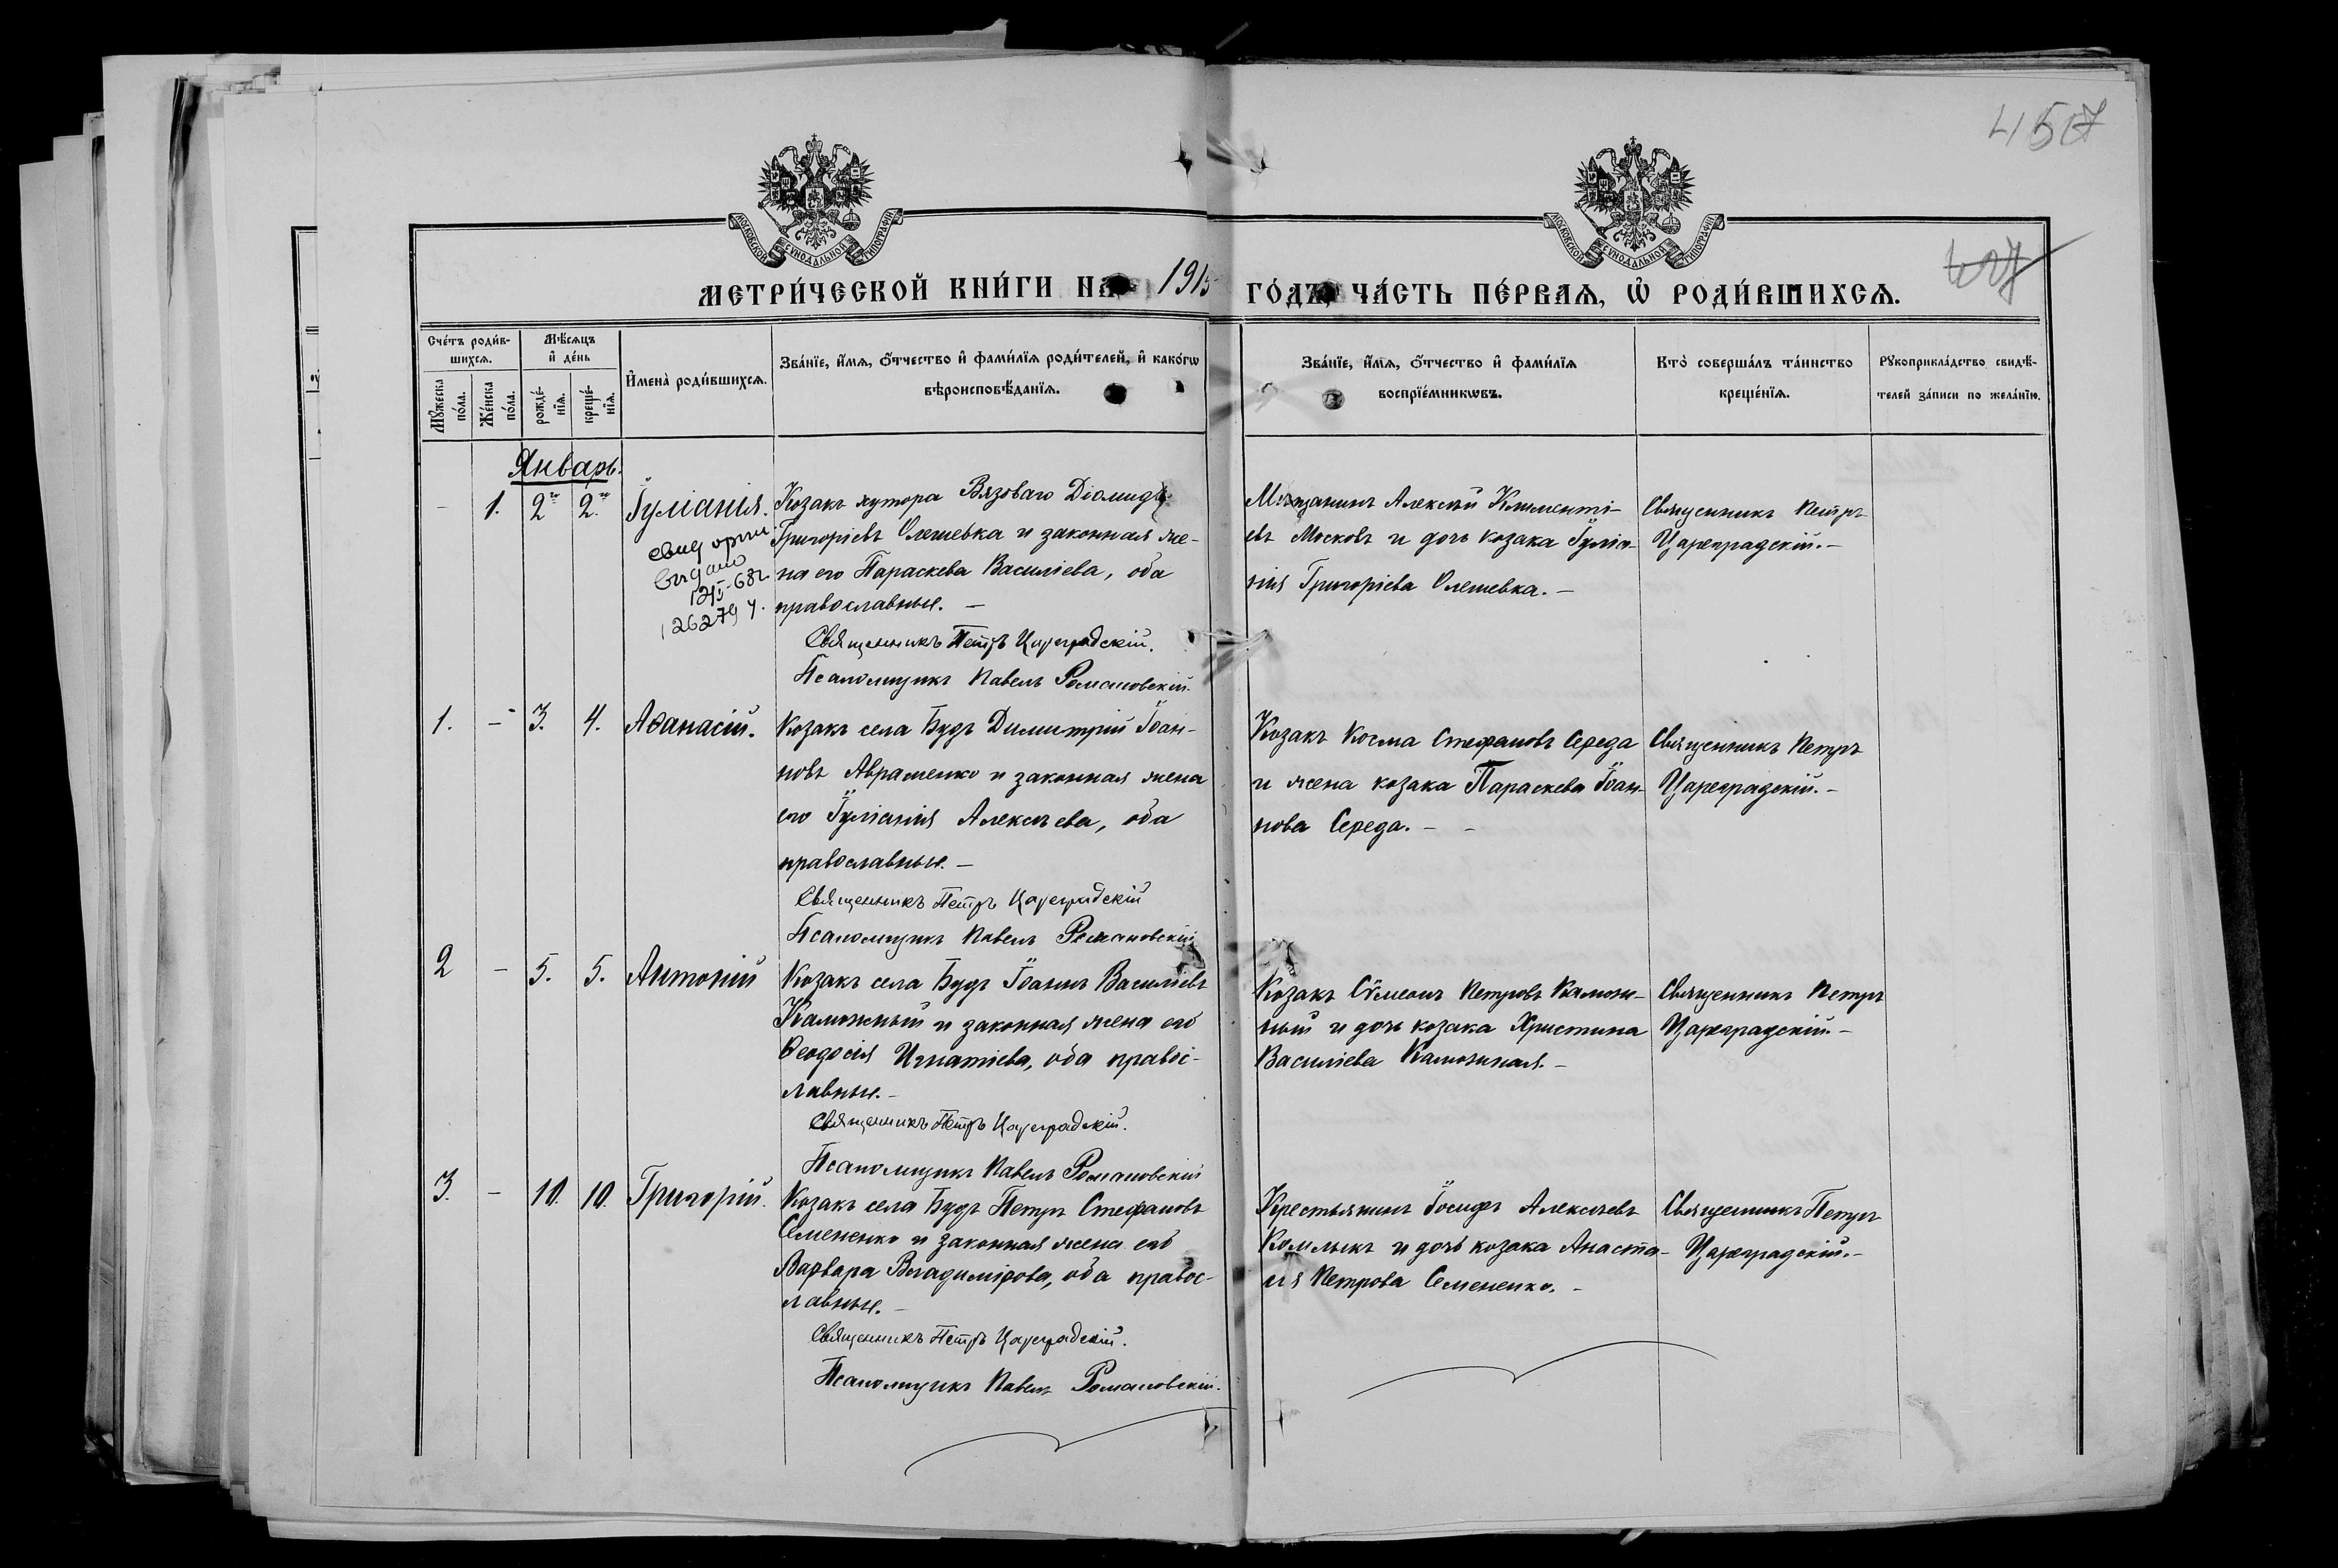 457
МОСКОВСКОЙ СУНОДАЛЬНОЙ ТИПОГРАФІИ
МОСКОВСКОЙ СУНОДАЛЬНОЙ ТИПОГРАФІИ
МЕТРИ́ЧЕСКОЙ КНИ́ГИ НА 1915 ГО́ДЪ, ЧА́СТЬ ПЕ́РВАѦ, Ѡ҆ РОДИ́ВШИХСѦ.
Сче́тъ роди́в-
шихсѧ.
Мѣ́сѧцъ
и҆ де́нь
Мꙋ́жеска
по́ла.
Же́нска
по́ла.
рожде́-
нїѧ.
креще́-
нїѧ.
И҆мена̀ роди́вшихсѧ.
Зва́нїе, и҆́мѧ, ѻ҆́тчество и҆ фами́лїѧ роди́телей, и҆ како́гѡ
вѣроисповѣ́данїѧ.
Зва́нїе, и҆́мѧ, ѻ҆́тчество и҆ фами́лїѧ
воспрїе́мникѡвъ.
Кто̀ соверша́лъ та́инство
креще́нїѧ.
Рꙋкоприкла́дство свидѣ́-
телей за́писи по жела́нїю.
Январь.
- 1. 2го 2го Іуліанія.
Козакъ хутора Вязоваго Діомидъ
Григоріевъ Олешевка и законная же-
на его Параскева Василіева, оба
православные. —
Священникъ Петръ Цареградскій.
Псаломщикъ Павелъ Романовскій.
126279
Мѣщанинъ Алексѣй Климентi-
евъ Московъ и дочь козака Іуліа-
нія Григоріева Олешевка. —
Священникъ Петръ
Цареградскій. —
1. - 3. 4. Аѳанасій.
Козакъ села Будъ Димитрій Іоан-
новъ Авраменко и законная жена
его Іуліанія Алексѣева, оба
православные. —
Священникъ Петръ Цареградскій
Псаломщикъ Павелъ Романовскій
Козакъ Косма Стефановъ Середа
и жена козака Параскева Іоан-
нова Середа. — -
Священникъ Петръ
Цареградскій. —
2 - 5. 5. Антоній
Козакъ села Будъ Іоаннъ Василіевъ
Калюжный и законная жена его
Ѳеодосія Игнатіева, оба правос-
лавные. —
Священникъ Петръ Цареградскій.
Псаломщикъ Павелъ Романовскій
Козакъ Сѵмеонъ Петровъ Калюж-
ный и дочь козака Христина
Василіева Калюжная. —
Священникъ Петръ
Цареградскій. —
3. - 10. 10. Григорій.
Козакъ села Будъ Петръ Стефановъ
Семененко и законная жена его
Варвара Владимірова, оба правос-
лавные. —
Священникъ Петръ Цареградскій.
Псаломщикъ Павелъ Романовскій.
Крестьянинъ Іосифъ Алексѣевъ
и дочь козака Анаста-
сія Петрова Семененко. -
Священникъ Петръ
Цареградскій. —